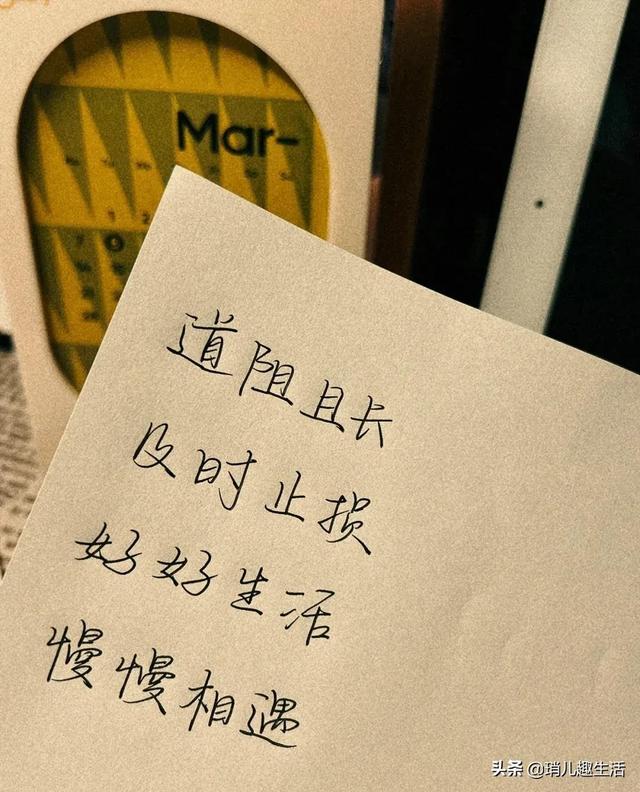 Mar-
1 2
道阻且长
及时止损
好好生活
慢慢相遇
头条 @琑儿趣生活